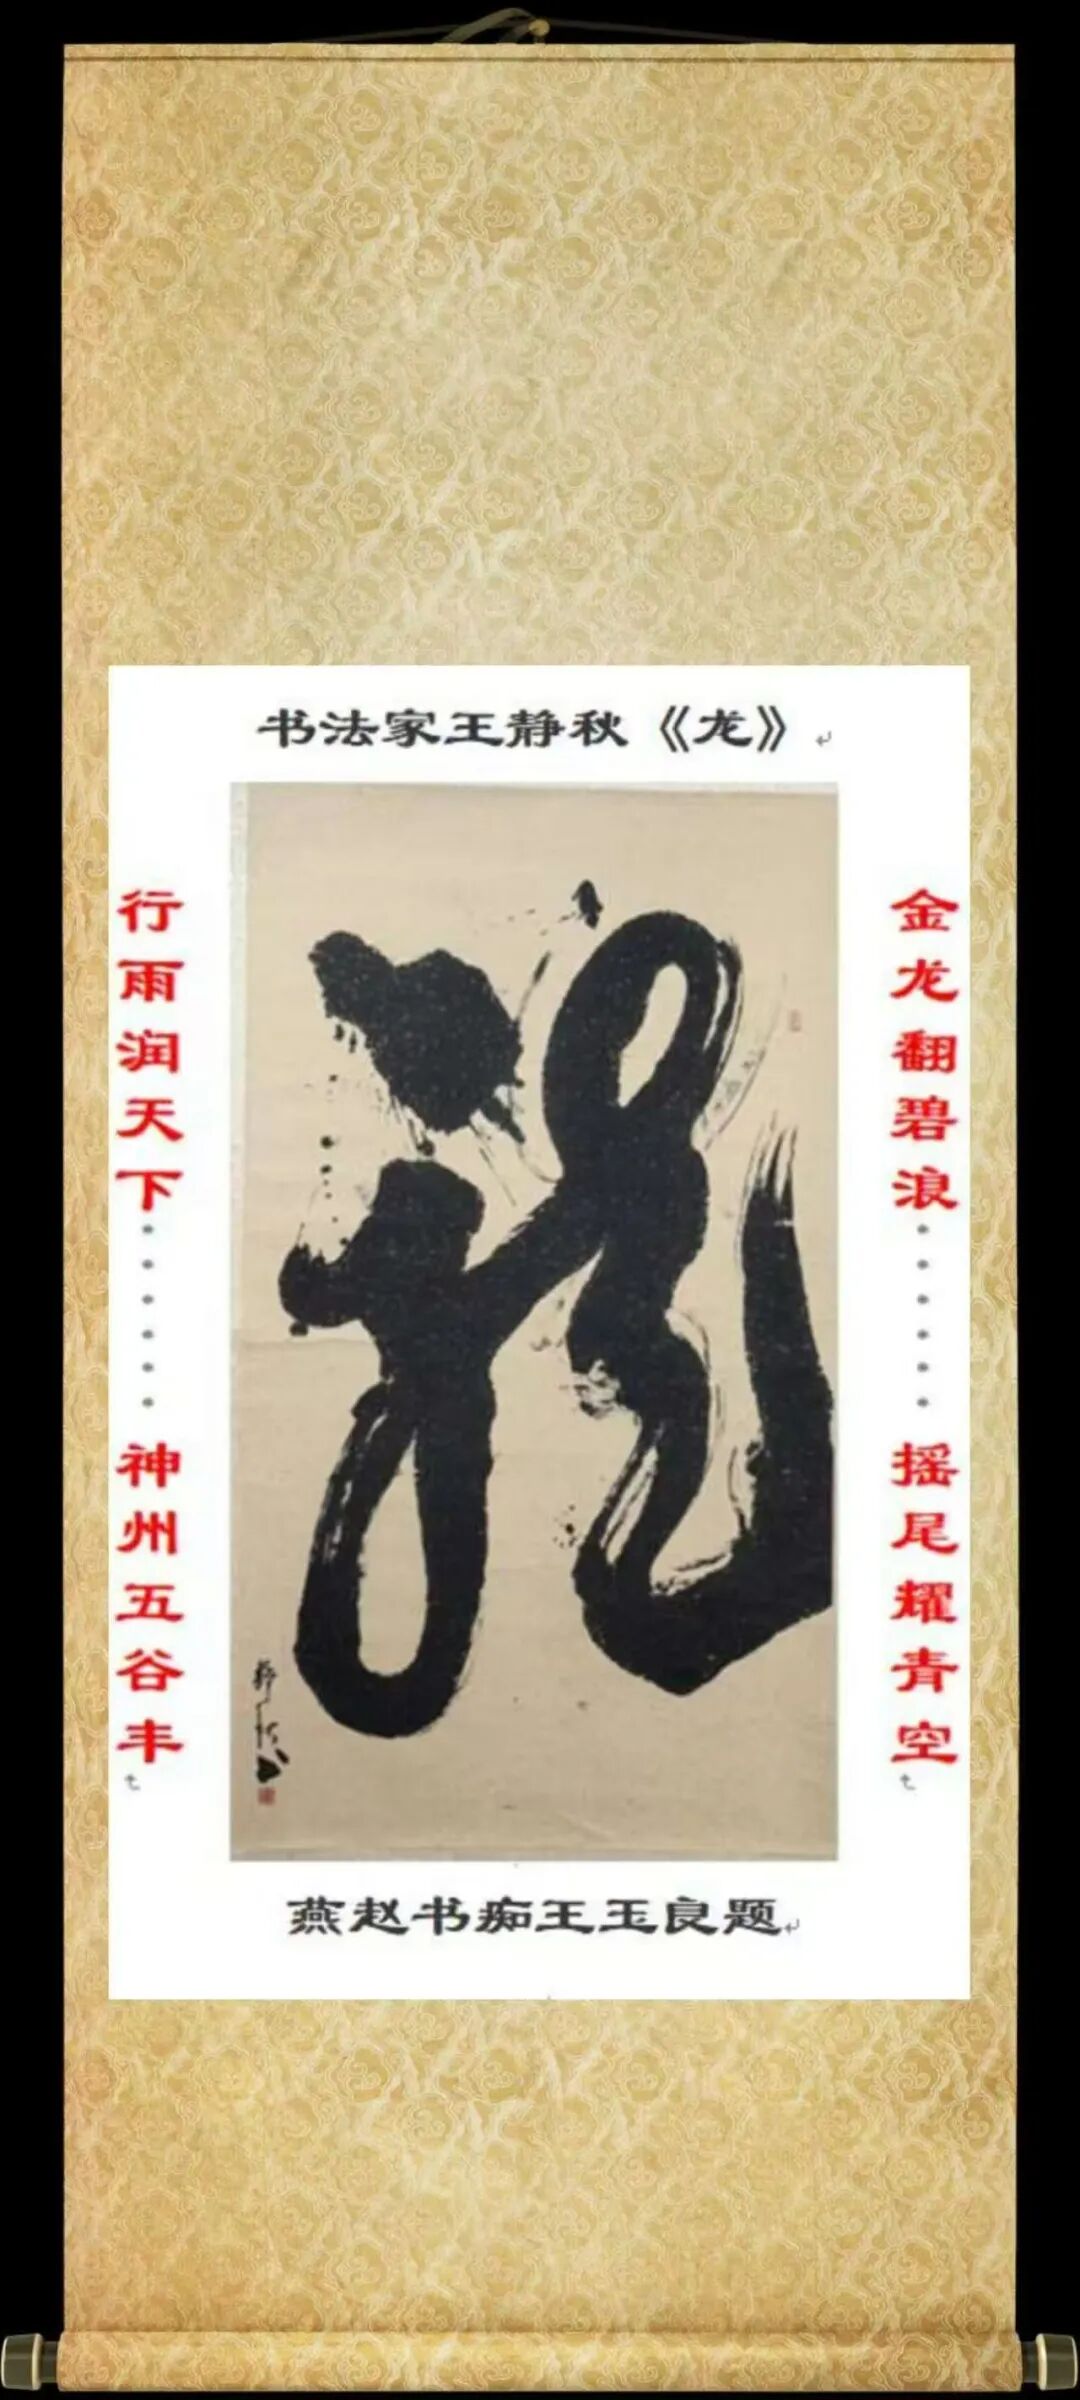 书法家王静秋《龙》
金龙翻碧浪……摇尾耀青空
行雨润天下……神州五谷丰
龙
静秋书
燕赵书痴王玉良题